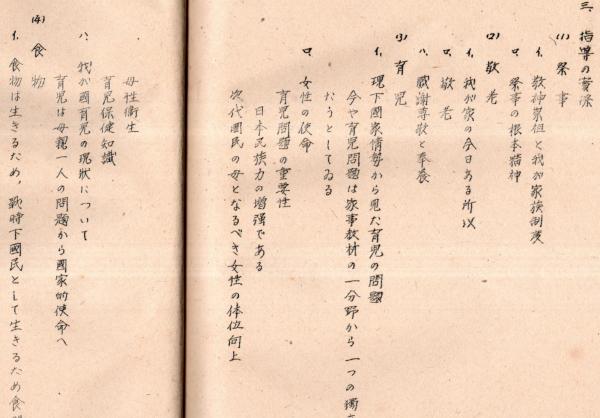 三、指導の実際
(1) 祭事
イ、敬神崇祖と我が家族制度
ロ、祭事の根本精神
(2) 敬老
イ、我が家の今日ある所以
ロ、敬老
ハ、感謝尊敬と奉養
(3) 育児
イ、現下國家情勢から見た育児の問題
今や育児問題は家事教材の一分野から一つの獨
だうとしてゐる
ロ、女性の使命
育児問題の重要性
日本民族力の増强である
次代國民の母となるべき女性の体位向上
母性衞生
育児保健知識
ハ、我が國育児の現狀について
育児は母親一人の問題から國家的使命へ
(4) 食物
イ、食物は生きるため、戰時下國民として生きるため食